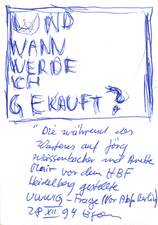 UND
WANN
WERDE
ICH
GEKAUFT?
"Die während des
Wartens auf Jörg
Weissenbacher und
vor dem HBF
Heidelberg gestellte
UWWG-Frage (vor Abfa Berlin)
28 XII 94